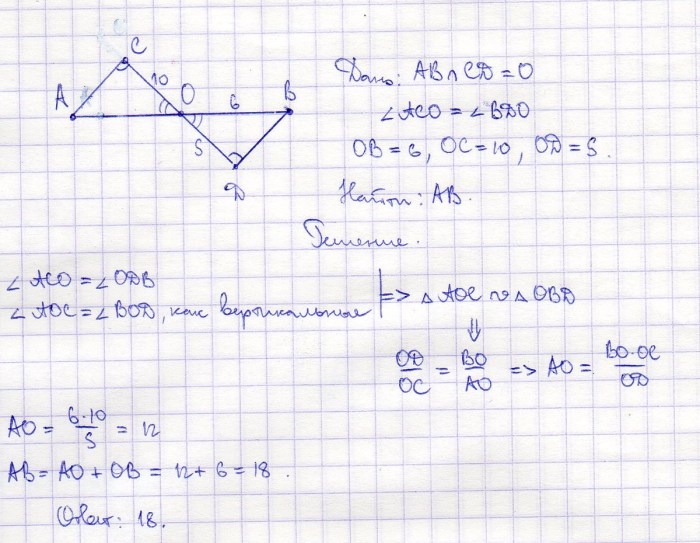 C
10
A
O
6
B
5
D
Дано: AB ∩ CD = O
∠ACO = ∠BDO
OB = 6, OC = 10, OD = 5.
Найти: AB.
Решение.
∠ACO = ∠ODB
∠AOC = ∠BOD, как вертикальные
=> △AOC ∾ △OBD
⇓
OD/OC = BO/AO => AO = BO·OC/OD
AO = 6·10/5 = 12
AB = AO + OB = 12 + 6 = 18.
Ответ: 18.